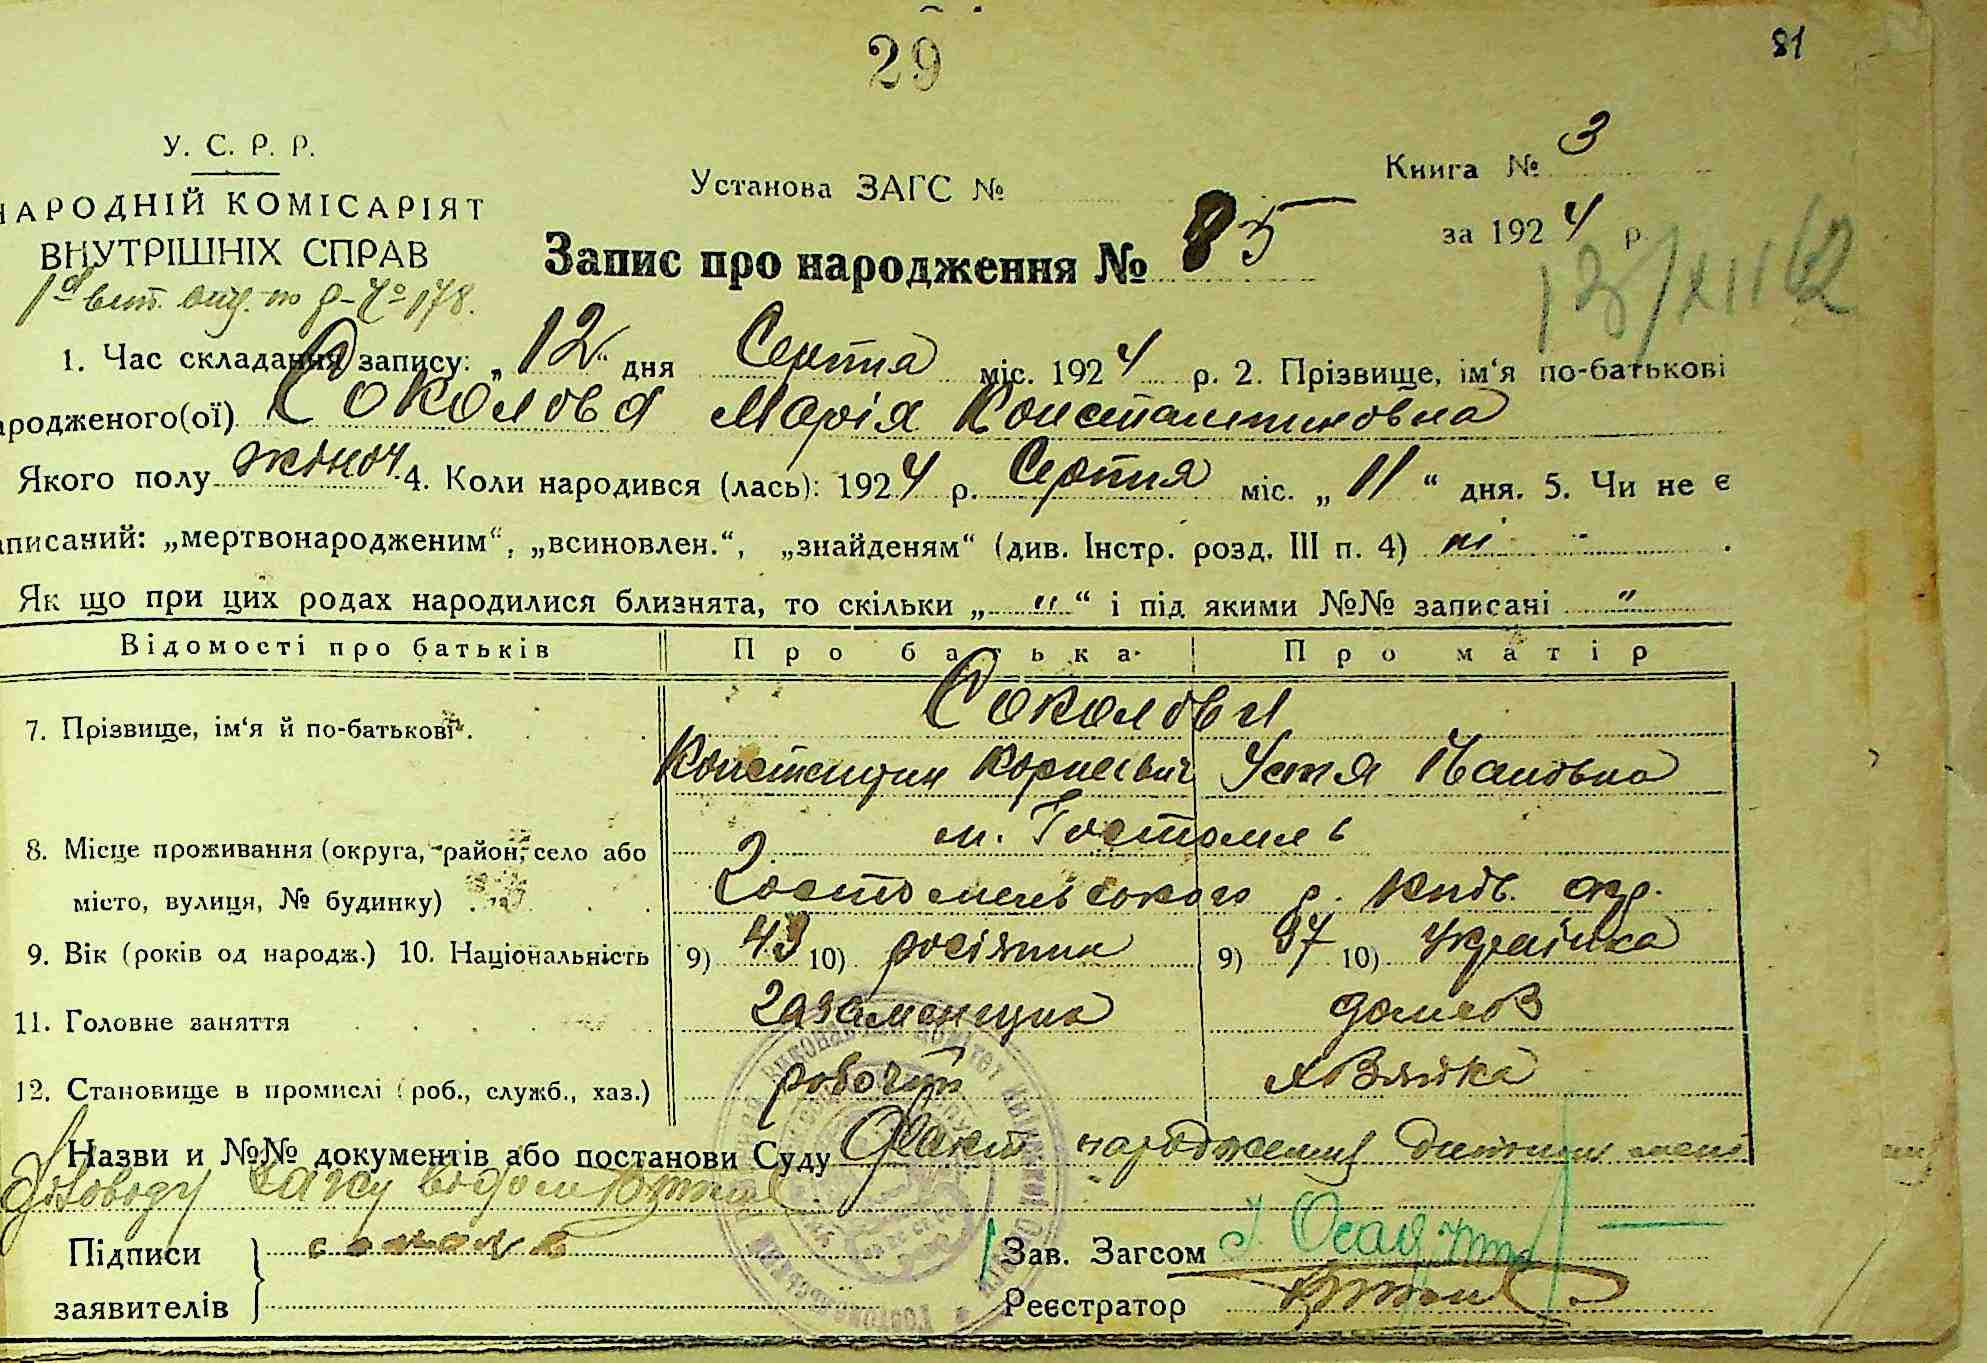 29
81
У. С. Р. Р.
НАРОДНІЙ КОМІСАРІЯТ
ВНУТРІШНІХ СПРАВ
Установа ЗАГС №
Книга № 3
за 1924 р.
Запис про народження № 85
178.
1. Час складання запису: „12“ дня Серпня міс. 1924 р. 2. Прізвище, ім‘я по-батькові
ародженого(ої) Соколова Марія Константиновна
Якого полу жіноч. 4. Коли народився (лась): 1924 р. Серпня міс. „11“ дня. 5. Чи не є
аписаний: „мертвонародженим“, „всиновлен.“, „знайденям“ (див. Інстр. розд. III п. 4) ні "
Як що при цих родах народилися близнята, то скільки „ " “ і під якими №№ записані "
Відомості про батьків Про батька Про матір
7. Прізвище, ім‘я й по-батькові Соколови
Константин Корнеевич Устя Ивановна
8. Місце проживання (округа, район, село або м. Гостомель
місто, вулиця, № будинку) Гостомельського р. Київ. окр.
9. Вік (років од народж.) 10. Національність 9) 43 10) росіянин 9) 37 10) Українка
11. Головне заняття домов
12. Становище в промислі (роб., служб., хаз.) робочий хозяйка
Назви и №№ документів або постанови Суду Факт народження дитини мені
Соколов
Підписи
заявителів
Зав. Загсом
Реєстратор